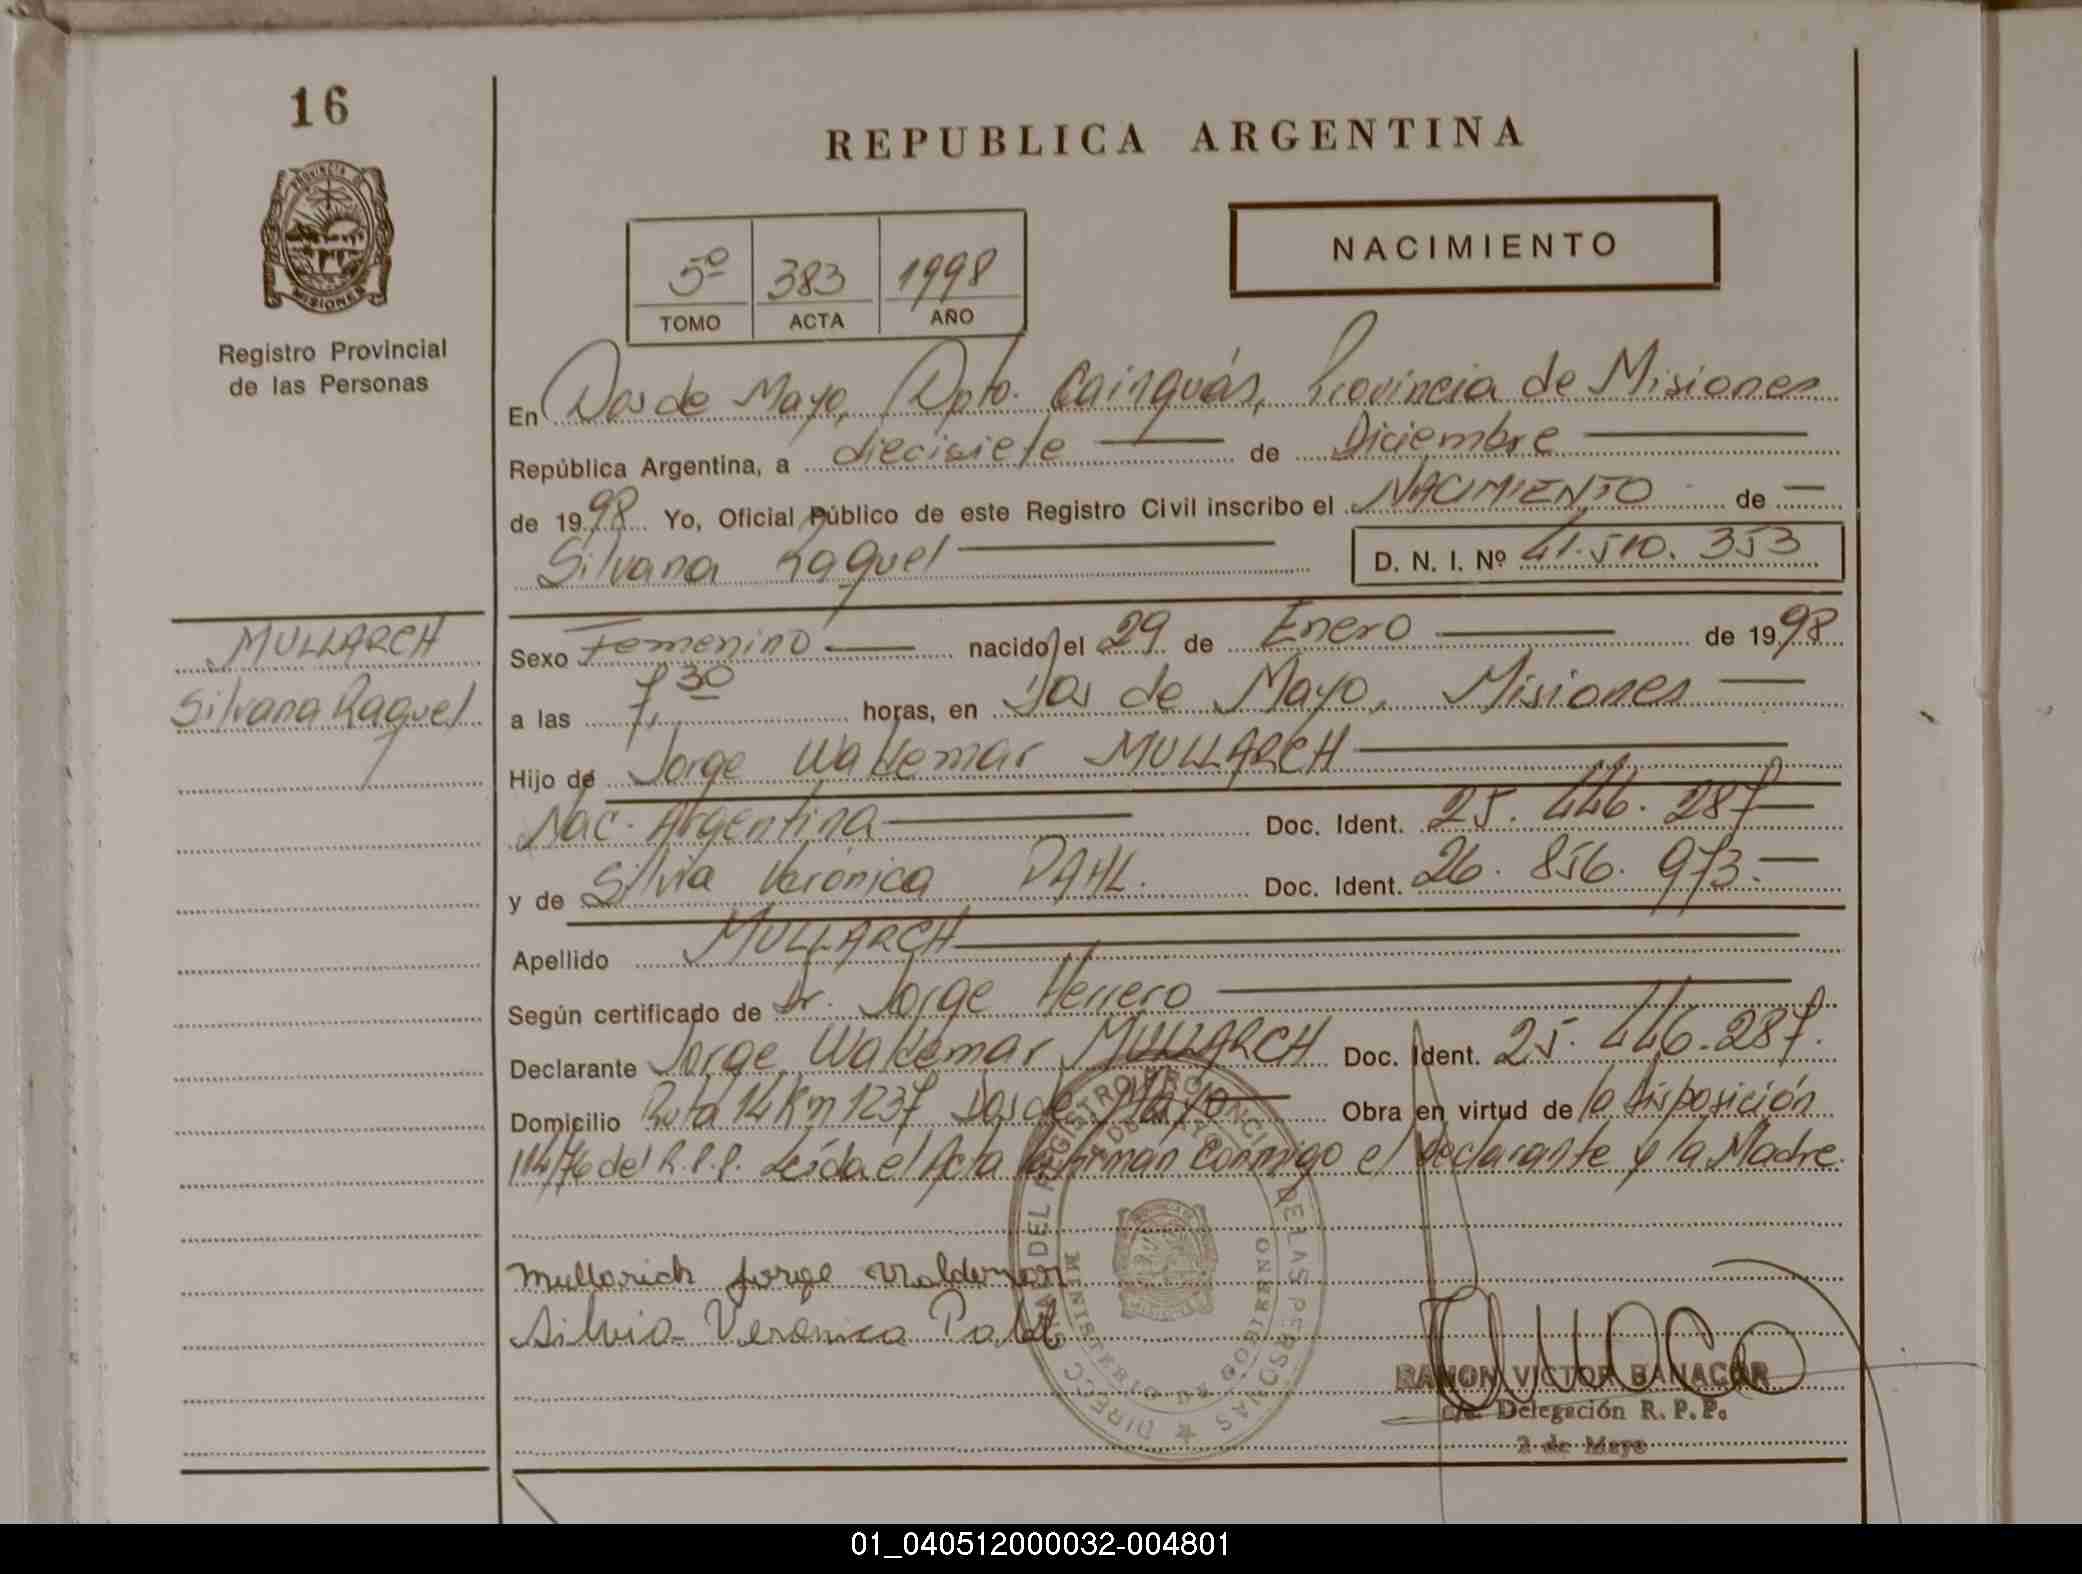 16
PROVINCIA DE
MISIONES
Registro Provincial
de las Personas
REPUBLICA ARGENTINA
5º 383 1998
TOMO ACTA AÑO
NACIMIENTO
En Dos de Mayo, Dpto. Cainguás, Provincia de Misiones
República Argentina, a diecisiete de Diciembre
de 1998 Yo, Oficial Público de este Registro Civil inscribo el NACIMIENTO de
Silvana Raquel D. N. I. Nº 41.510.353
MULLARCH
Silvana Raquel
Sexo Femenino nacido el 29 de Enero de 1998
a las 7,30 horas, en Dos de Mayo, Misiones
Hijo de Jorge Waldemar MULLARCH
Nac. Argentina Doc. Ident. 25.446.287
y de Silvia Verónica DAHL. Doc. Ident. 26.856.973.
Apellido MULLARCH
Según certificado de Dr. Jorge Herrero
Declarante Jorge Waldemar MULLARCH Doc. Ident. 25.446.287.
Domicilio Ruta 14 Km 1237 Dos de Mayo Obra en virtud de la disposición
114/76 del R.P.P. Leída el Acta la firman conmigo el declarante y la Madre.
Mullarich Jorge Waldemar
Silvia Veronica
DIRECC. GRAL. DEL REGISTRO PROVINCIAL DE LAS PERSONAS
MINISTERIO DE GOBIERNO
RAMON VICTOR BANACOR
Delegación R. P. P.
2 de Mayo
01_040512000032-004801